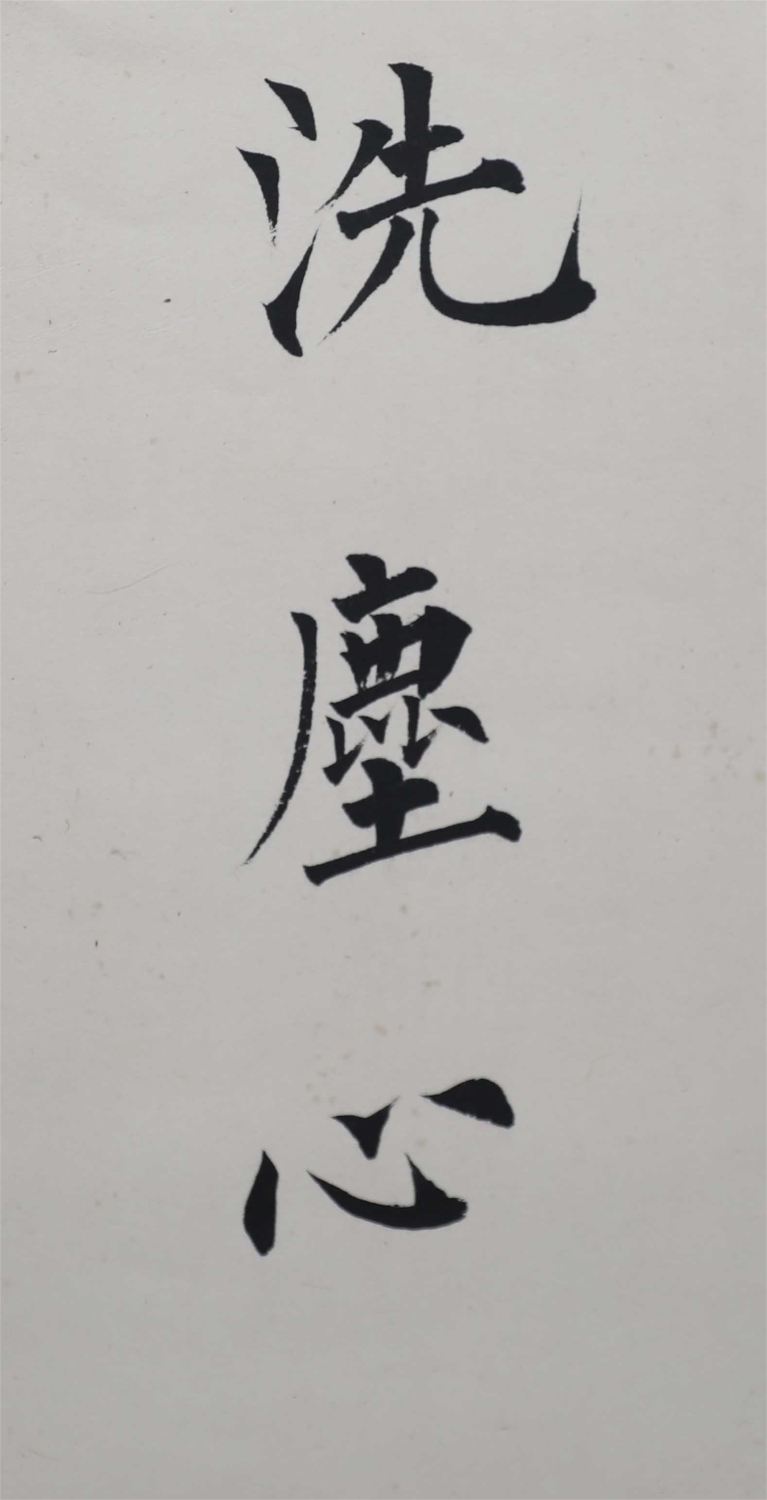 洗塵心